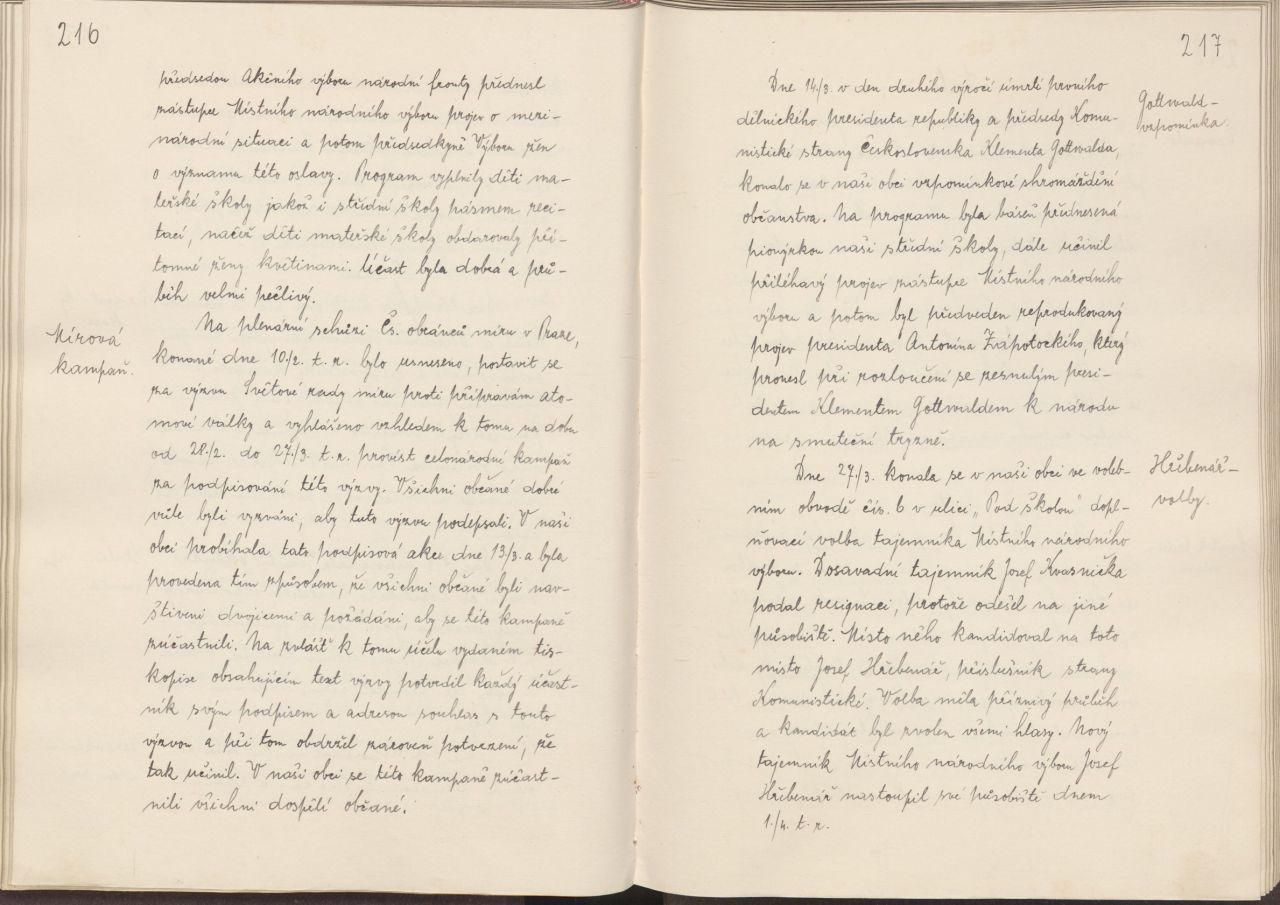 216
předsedou Akčního výboru národní fronty přednesl
zástupce Místního národního výboru projev o mezi-
národní situaci a potom předsedkyně Výboru žen
o významu této oslavy. Program vyplnily děti ma-
teřské školy jakož i střední školy pásmem reci-
tací, načež děti mateřské školy obdarovaly pří-
tomné ženy květinami. Účast byla dobrá a prů-
běh velmi pečlivý.
Mírová
kampaň.
Na plenární schůzi Čs. obránců míru v Praze,
konané dne 10./2. t. r. bylo usneseno, postavit se
za výzvu Světové rady míru proti přípravám ato-
mové války a vyhlášeno vzhledem k tomu na dobu
od 28./2. do 27./3. t. r. provést celonárodní kampaň
za podpisování této výzvy. Všichni občané dobré
vůle byli vyzváni, aby tuto výzvu podepsali. V naší
obci probíhala tato podpisová akce dne 13/3. a byla
provedena tím způsobem, že všichni občané byli nav-
štíveni dvojicemi a požádáni, aby se této kampaně
zúčastnili. Na zvlášť k tomu účelu vydaném tis-
kopise obsahujícím text výzvy potvrdil každý účast-
ník svým podpisem a adresou souhlas s touto
výzvou a při tom obdržel zároveň potvrzení, že
tak učinil. V naší obci se této kampaně zúčast-
nili všichni dospělí občané.
217
Gottwald-
vzpomínka.
Dne 14./3. v den druhého výročí úmrtí prvního
dělnického presidenta republiky a předsedy Komu-
nistické strany Československa Klementa Gottwalda,
konalo se v naší obci vzpomínkové shromáždění
občanstva. Na programu byla báseň přednesená
pionýrkou naší střední školy, dále učinil
přiléhavý projev zástupce Místního národního
výboru a potom byl předveden reprodukovaný
projev presidenta Antonína Zápotockého, který
pronesl při rozloučení se zesnulým presi-
dentem Klementem Gottwaldem k národu
na smuteční tryzně.
Hřebenář-
volby.
Dne 27./3. konala se v naší obci ve voleb-
ním obvodě čís. 6 v ulici „Pod školou" dopl-
ňovací volba tajemníka Místního národního
výboru. Dosavadní tajemník Josef Kvasnička
podal resignaci, protože odešel na jiné
působiště. Místo něho kandidoval na toto
místo Josef Hřebenář, příslušník strany
Komunistické. Volba měla příznivý průběh
a kandidát byl zvolen všemi hlasy. Nový
tajemník Místního národního výboru Josef
Hřebenář nastoupil své působiště dnem
1./4. t. r.